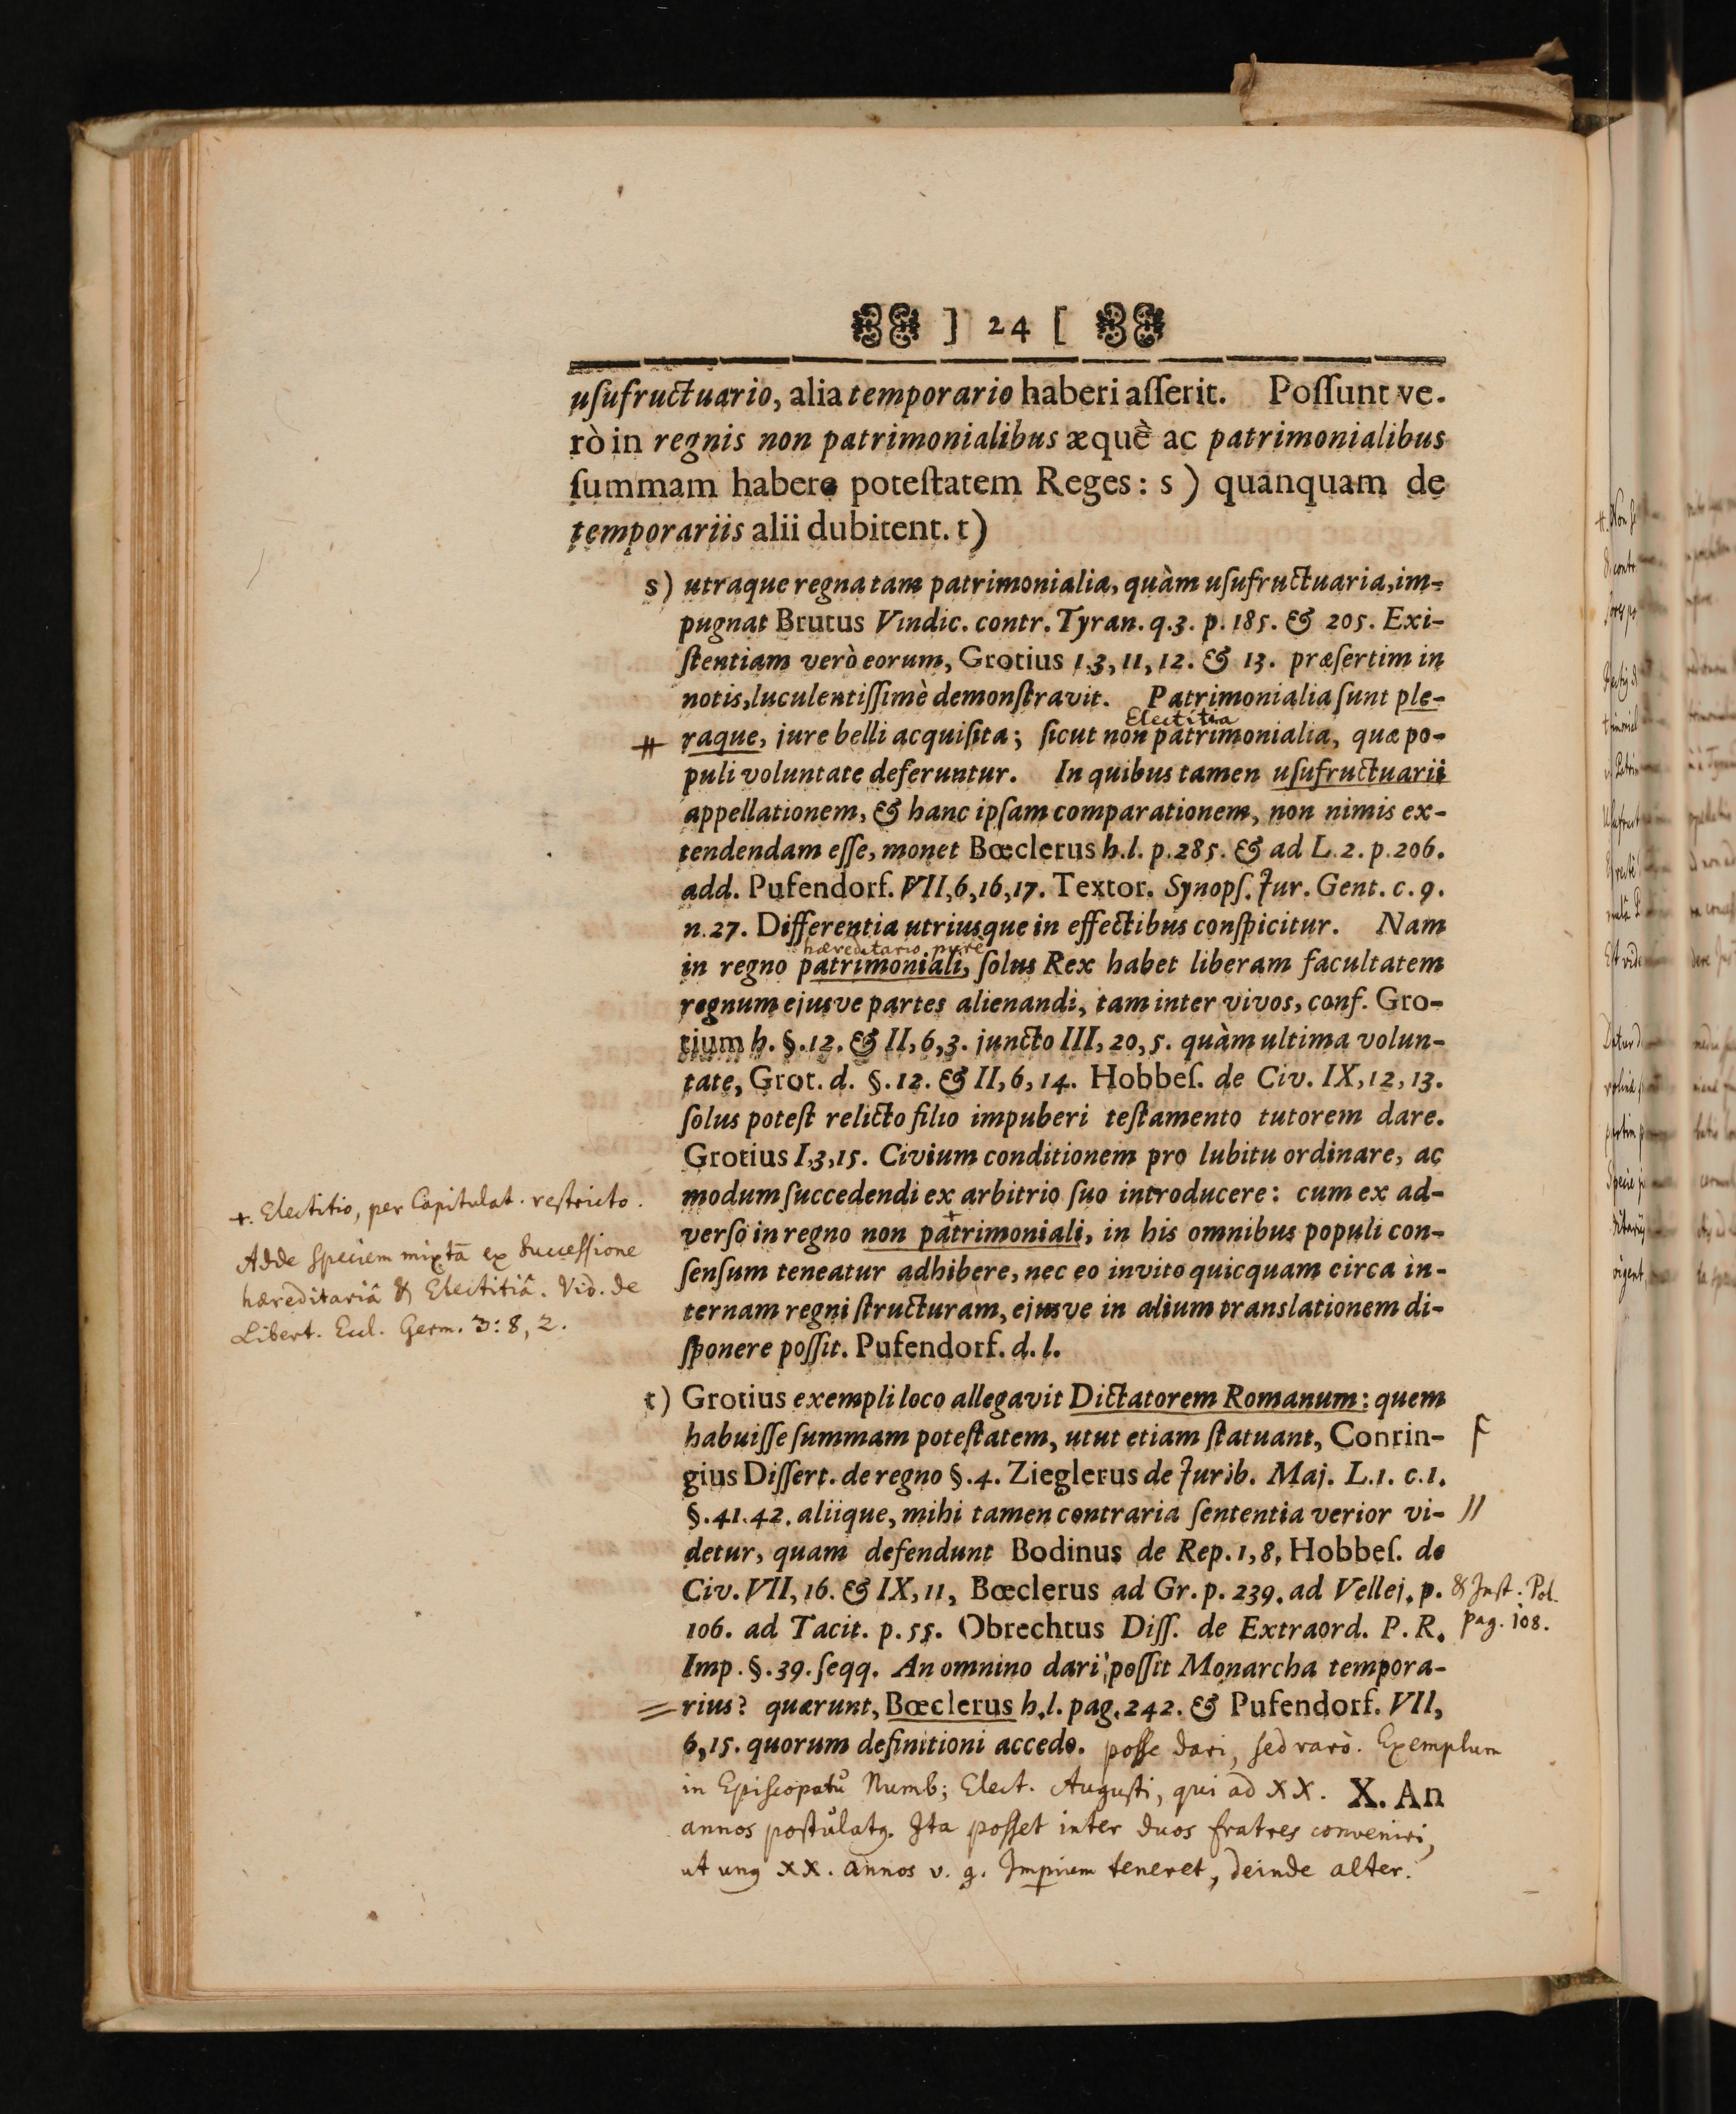 ] 24 [
uſufructuario, alia temporario haberi aſſerit. Poſſunt ve-
rò in regnis non patrimonialibus æquè ac patrimonialibus
ſummam habere poteſtatem Reges: s) quanquam de
temporariis alii dubitent. t)
s) utraque regna tam patrimonialia, quàm uſufructuaria, im-
pugnat Brutus Vindic. contr. Tyran. q.3. p. 185. & 205. Exi-
ſtentiam verò eorum, Grotius 1.3, 11, 12. & 13. præſertim in
notis, luculentiſſimè demonſtravit. Patrimonialia ſunt ple-
Electitia
# raque, jure belli acquiſita; ſicut non patrimonialia, quæ po-
puli voluntate deferuntur. In quibus tamen uſufructuarii
appellationem, & hanc ipſam comparationem, non nimis ex-
tendendam eſſe, monet Bœclerus h.l. p.285. & ad L.2. p.206.
add. Pufendorf. VII,6,16,17. Textor. Synopſ. Jur. Gent. c. 9.
n.27. Differentia utriusque in effectibus conſpicitur. Nam
hæreditario purè
in regno patrimoniali, ſolus Rex habet liberam facultatem
regnum ejusve partes alienandi, tam inter vivos, conf. Gro-
tium h. §.12. & II, 6,3. juncto III, 20, 5. quàm ultima volun-
tate, Grot. d. §.12. & II, 6, 14. Hobbeſ. de Civ. IX, 12, 13.
ſolus poteſt relicto filio impuberi teſtamento tutorem dare.
Grotius I,3,15. Civium conditionem pro lubitu ordinare, ac
modum ſuccedendi ex arbitrio ſuo introducere: cum ex ad-
+
verſo in regno non patrimoniali, in his omnibus populi con-
ſenſum teneatur adhibere, nec eo invito quicquam circa in-
ternam regni ſtructuram, ejusve in alium translationem di-
ſponere poſſit. Pufendorf. d. l.
+. Electitio, per Capitulat. reſtricto.
Adde Speciem mixtā ex Succeſſione
hæreditariâ & Electitiâ. Vid. de
Libert. Eccl. Germ. 3: 8, 2.
t) Grotius exempli loco allegavit Dictatorem Romanum: quem
habuiſſe ſummam poteſtatem, utut etiam ſtatuant, Conrin-
gius Diſſert. de regno §.4. Zieglerus de Jurib. Maj. L.1. c.1.
§.41.42. aliique, mihi tamen contraria ſententia verior vi- //
detur, quam defendunt Bodinus de Rep. 1, 8, Hobbeſ. de
Civ. VII, 16. & IX, 11, Bœclerus ad Gr. p. 239. ad Vellej. p. & Inst. Pol.
106. ad Tacit. p. 55. Obrechtus Diſſ. de Extraord. P. R. pag. 108.
Imp. §. 39. ſeqq. An omnino dari poſſit Monarcha tempora-
= rius? quærunt, Bœclerus h.l. pag. 242. & Pufendorf. VII,
6,15. quorum definitioni accedo. poſſe dari, ſed rarò. Exemplum
in Epiſcopatu Numb; Elect. Augusti, qui ad XX. X. An
annos postulatꝰ. Ita poſſet inter duos fratres conveniri,
ut unꝰ XX. annos v. g. Imperium teneret, deinde alter.